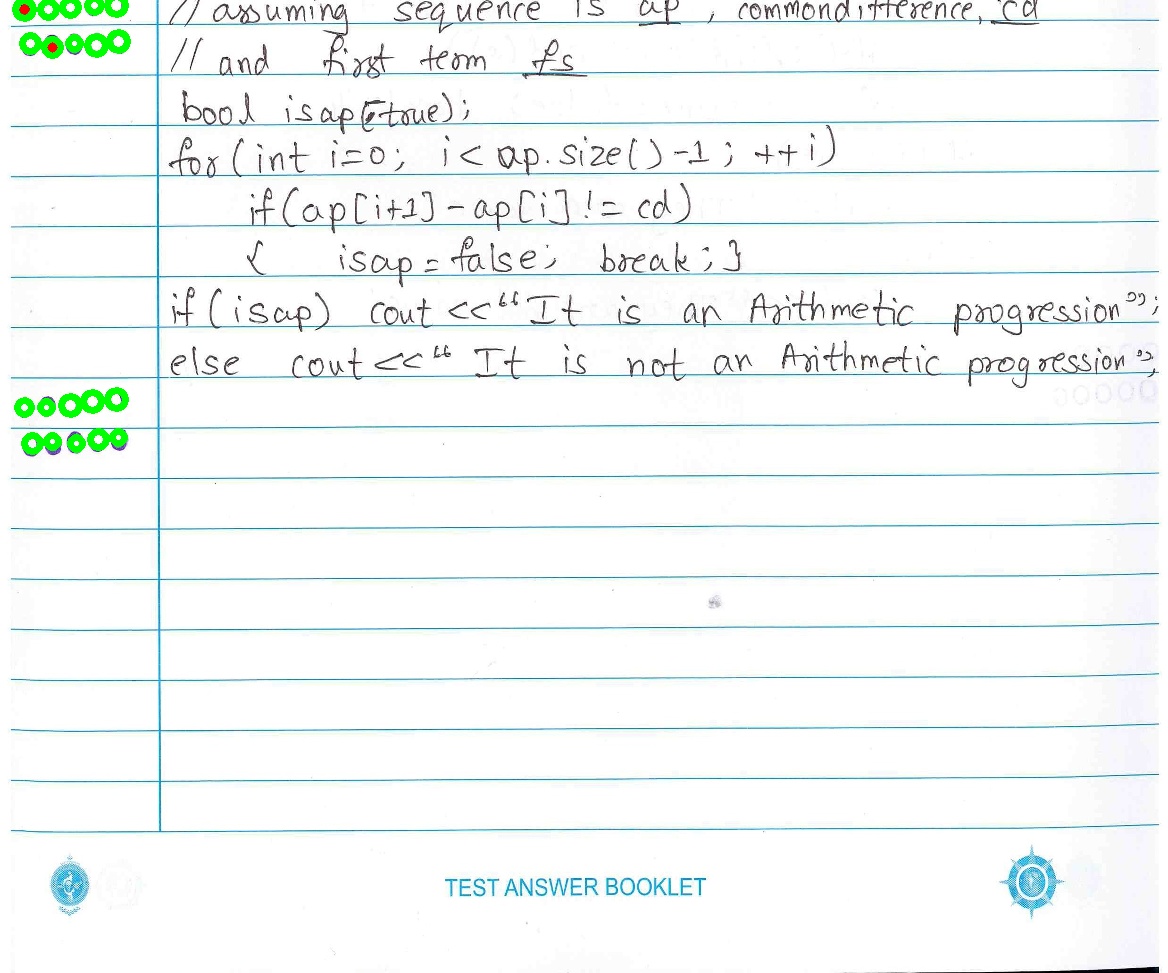 // assuming sequence is ap , commondifference, cd
// and first term fs
bool isap(true);
for(int i=0; i< ap.size()-1; ++i)
if(ap[i+1]-ap[i]!= cd)
{ isap = false; break;}
if(isap) cout <<“It is an Arithmetic progression”;
else cout<<“It is not an Arithmetic progression”;
TEST ANSWER BOOKLET